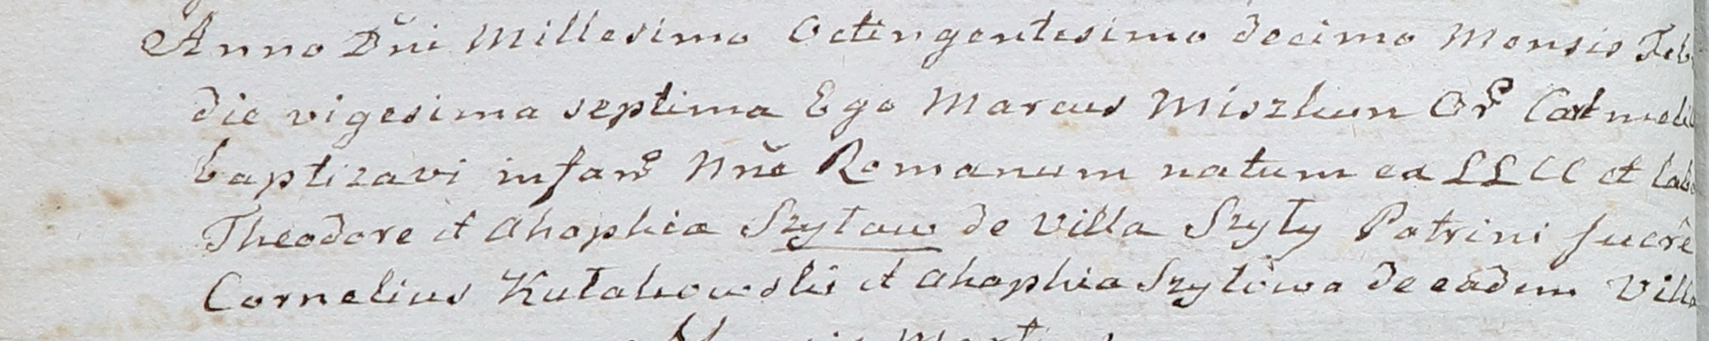 Anno Dñi Millesimo Octingentesimo decimo Mensis Feb
die vigesima septima Ego Marcus Miszkun
baptizavi infan Nñe Romanum natum ea LL CC et lab
Theodore et Ahaphia Szytow de Villa Szyty Patrini fuere
Cornelius Kułakowski et Ahaphia Szytowa de eadem Villa